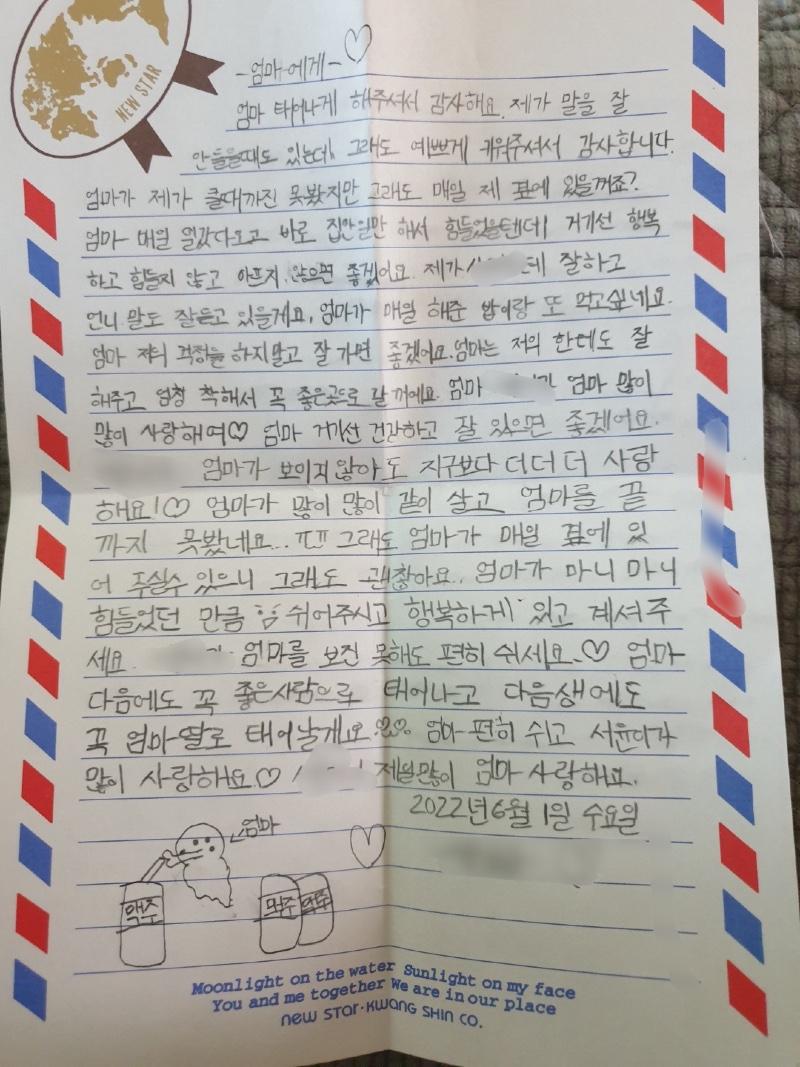 NEW STAR
-엄마에게-♡
엄마 태어나게 해주셔서 감사해요. 제가 말을 잘
안들을때도 있는데 그래도 예쁘게 키워주셔서 감사합니다.
엄마가 제가 클때까진 못봤지만 그래도 매일 제 곁에 있을꺼죠?
엄마 매일 일갔다오고 바로 집안일만 해서 힘들었을텐데 거기선 행복
하고 힘들지 않고 아프지 않으면 좋겠어요. 제가 잘하고
언니 말도 잘듣고 있을게요, 엄마가 매일 해준 밥이랑 또 먹고싶네요.
엄마 걱정들 하지말고 잘 가면 좋겠어요. 엄마는 저희 한테도 잘
해주고 엄청 착해서 꼭 좋은곳으로 갈 꺼에요. 엄마 엄마 많이
많이 사랑해여♡ 엄마 거기선 건강하고 잘 있으면 좋겠어요.
엄마가 보이지 않아도 지구보다 더더더 사랑
해요!♡ 엄마가 많이 많이 같이 살고 엄마를 끝
까지 못봤네요... ㅠㅠ 그래도 엄마가 매일 곁에 있
어 주실수 있으니 그래도 괜찮아요.. 엄마가 마니 마니
힘들었던 만큼 쉬어주시고 행복하게 있고 계셔주
세요. 엄마를 보진 못해도 편히 쉬세요.♡ 엄마
다음에도 꼭 좋은사람으로 태어나고 다음생에도
꼭 엄마딸로 태어날게요.♡♡ 엄마 편히 쉬고
많이 사랑해요♡ 제일많이 엄마 사랑해요.
2022년 6월 1일 수요일
엄마
맥주
맥주 맥주
Moonlight on the water Sunlight on my face
You and me together We are in our place
new star·kwang shin co.